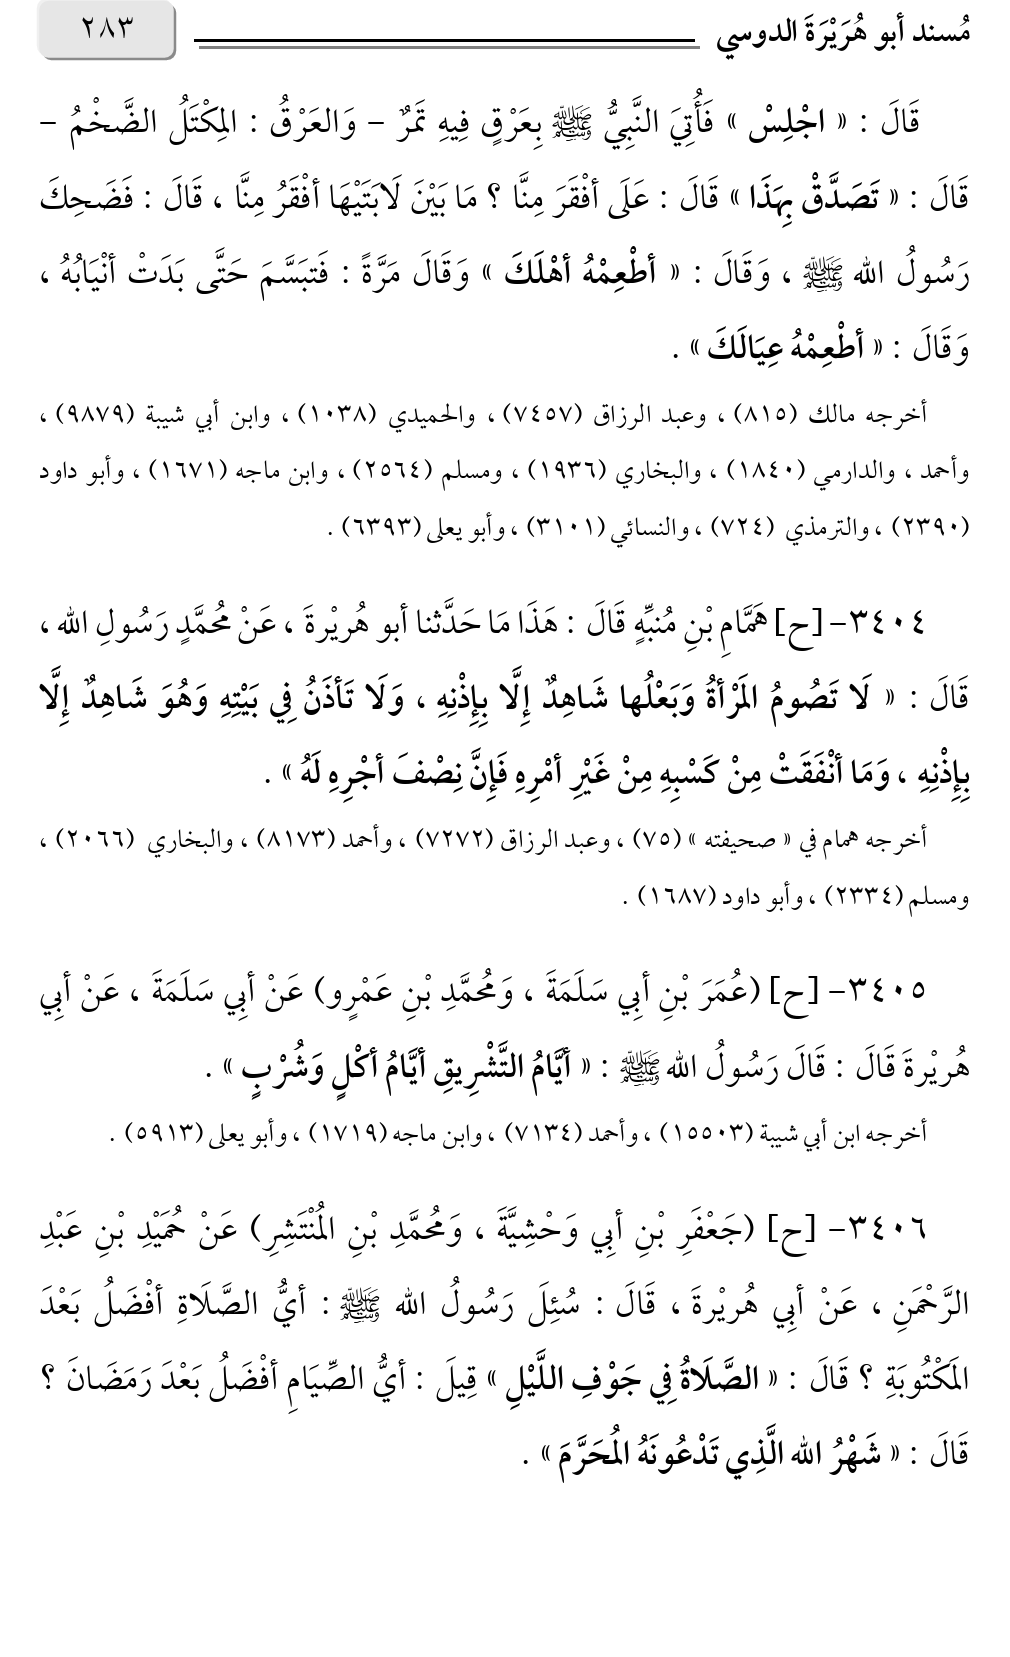 مُسند أبو هُرَيْرَةَ الدوسي
٢٨٣
قَالَ : « اجْلِسْ » فَأُتِيَ النَّبِيُّ ﷺ بِعَرْقٍ فِيهِ تَمَرٌ – وَالعَرْقُ : المِكْتَلُ الضَّخْمُ –
قَالَ : « تَصَدَّقْ بِهَذَا » قَالَ : عَلَى أفْقَرَ مِنَّا ؟ مَا بَيْنَ لَابَتَيْهَا أفْقَرُ مِنَّا ، قَالَ : فَضَحِكَ
رَسُولُ الله ﷺ ، وَقَالَ : « أطْعِمْهُ أهْلَكَ » وَقَالَ مَرَّةً : فَتبَسَّمَ حَتَّى بَدَتْ أنْيَابُهُ ،
وَقَالَ : « أطْعِمْهُ عِيَالَكَ » .
أخرجه مالك (٨١٥) ، وعبد الرزاق (٧٤٥٧) ، والحميدي (١٠٣٨) ، وابن أبي شيبة (٩٨٧٩) ،
وأحمد ، والدارمي (١٨٤٠) ، والبخاري (١٩٣٦) ، ومسلم (٢٥٦٤) ، وابن ماجه (١٦٧١) ، وأبو داود
(٢٣٩٠) ، والترمذي (٧٢٤) ، والنسائي (٣١٠١) ، وأبو يعلى (٦٣٩٣) .
٣٤٠٤- [ح] هَمَّامِ بْنِ مُنبِّهٍ قَالَ : هَذَا مَا حَدَّثنا أبو هُريْرةَ ، عَنْ مُحمَّدٍ رَسُولِ الله ،
قَالَ : « لَا تَصُومُ المَرْأةُ وَبَعْلُها شَاهِدٌ إِلَّا بِإِذْنِهِ ، وَلَا تَأذَنُ فِي بَيْتِهِ وَهُوَ شَاهِدٌ إِلَّا
بِإِذْنِهِ ، وَمَا أنْفَقَتْ مِنْ كَسْبِهِ مِنْ غَيْرِ أمْرِهِ فَإِنَّ نِصْفَ أجْرِهِ لَهُ » .
أخرجه همام في « صحيفته » (٧٥) ، وعبد الرزاق (٧٢٧٢) ، وأحمد (٨١٧٣) ، والبخاري (٢٠٦٦) ،
ومسلم (٢٣٣٤) ، وأبو داود (١٦٨٧) .
٣٤٠٥- [ح] (عُمَرَ بْنِ أبِي سَلَمَةَ ، وَمُحمَّدِ بْنِ عَمْرٍو) عَنْ أبِي سَلَمَةَ ، عَنْ أبِي
هُريْرةَ قَالَ : قَالَ رَسُولُ الله ﷺ : « أيَّامُ التَّشْرِيقِ أيَّامُ أكْلٍ وَشُرْبٍ » .
أخرجه ابن أبي شيبة (١٥٥٠٣) ، وأحمد (٧١٣٤) ، وابن ماجه (١٧١٩) ، وأبو يعلى (٥٩١٣) .
٣٤٠٦- [ح] (جَعْفَرِ بْنِ أبِي وَحْشِيَّةَ ، وَمُحمَّدِ بْنِ المُنْتَشِرِ) عَنْ حُمَيْدِ بْنِ عَبْدِ
الرَّحْمَنِ ، عَنْ أبِي هُريْرةَ ، قَالَ : سُئِلَ رَسُولُ الله ﷺ : أيُّ الصَّلَاةِ أفْضَلُ بَعْدَ
المَكْتُوبَةِ ؟ قَالَ : « الصَّلَاةُ فِي جَوْفِ اللَّيْلِ » قِيلَ : أيُّ الصِّيَامِ أفْضَلُ بَعْدَ رَمَضَانَ ؟
قَالَ : « شَهْرُ الله الَّذِي تَدْعُونَهُ المُحَرَّمَ » .